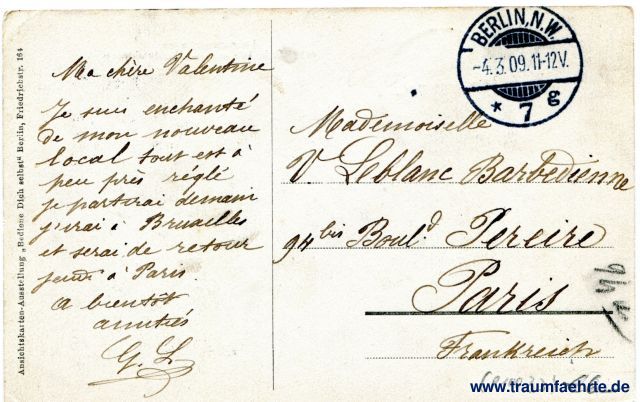 Ansichtskarten-Ausstellung „Bediene Dich selbst“ Berlin, Friedrichstr. 164
Ma chère Valentine
Je suis enchanté
de mon nouveau
local tout est à
peu près réglé
je partirai demain
j'irai à Bruxelles
et serai de retour
jeudi à Paris.
a bientôt
amitiés
G. L.
BERLIN, N.W.
-4.3.09.11-12V.
* 7 g
Mademoiselle
V. Leblanc Barbedienne
94 bis Boul.d Pereire
Paris
Frankreich
www.traumfaehrte.de